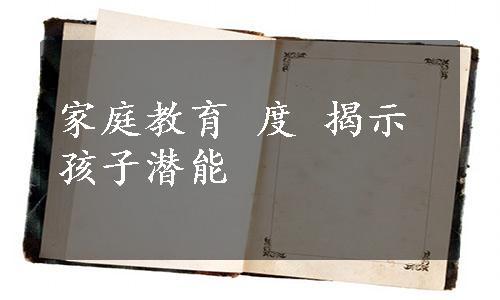 家庭教育 度 揭示
孩子潜能